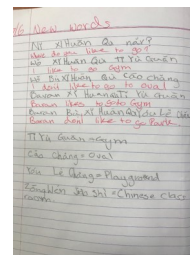 7/6 New Words
Nǐ XǐHuān Qù nǎr?
Where do you like to go?
Wǒ XǐHuān Qù Tǐ Yù Guǎn
I like to go Gym
Wǒ Bù XǐHuān Qù Cāo chǎng
I don't like to go to oval
Xǐ Huān Qù Tǐ Yù Guǎn
likes to go to Gym
Bù XǐHuān Qù Yóu Lè Chǎng
don't like to go Park
Tǐ Yù Guǎn = Gym
Cāo Chǎng = Oval
Yóu Lè Chǎng = Playground
Zhōng Wén Jiào Shì = Chinese Class
room